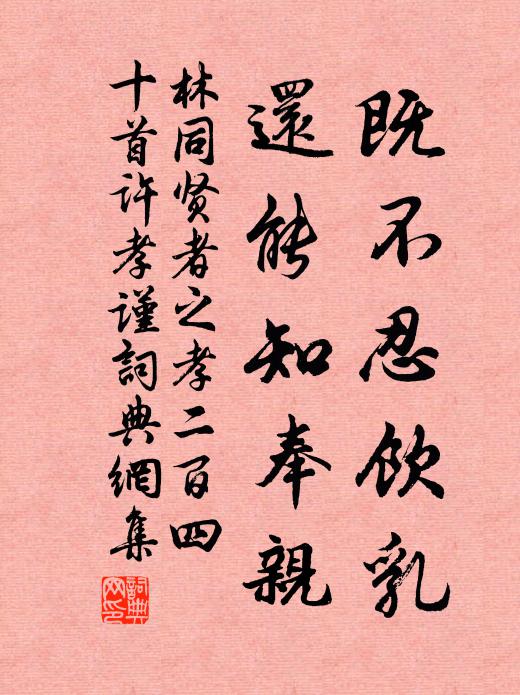 既不忍飲乳
還能知奉親
林同贤者之孝二百四
十首许孝謹詞典網集
詞典網印